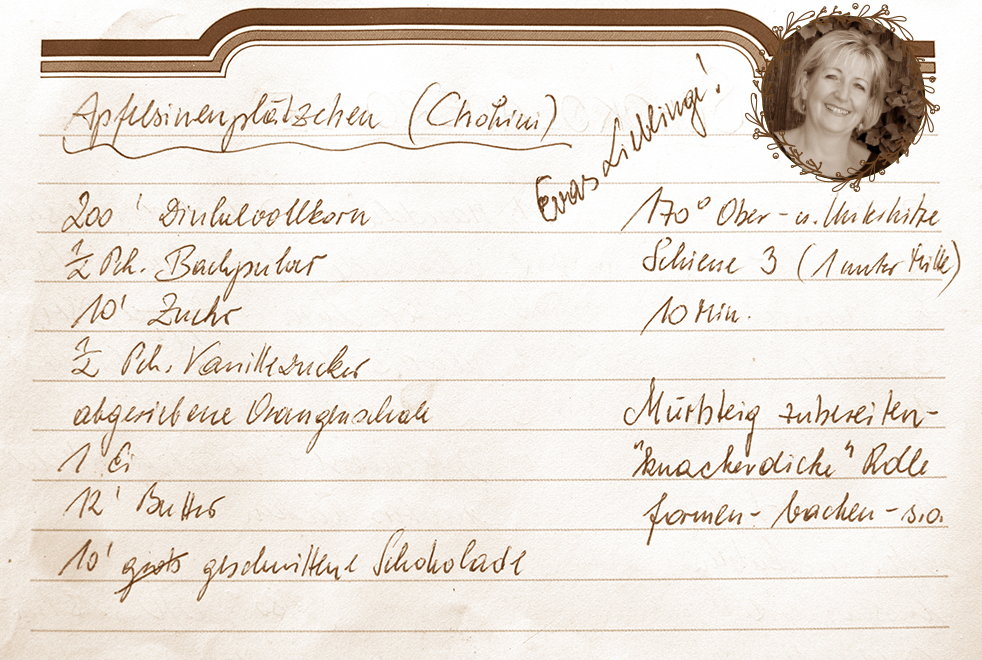 Apfelsinenplätzchen (Chokini)
Evas Lieblinge!
200' Dinkelvollkorn
½ Pck. Backpulver
10' Zucker
½ Pck. Vanillezucker
abgeriebene Orangenschale
1 Ei
12' Butter
10' geschnittene Schokolade
170° Ober- u. Unterhitze
Schiene 3 (1 unter Mitte)
10 Min.
Mürbteig zubereiten-
"knackerdicke" Rolle
formen- backen - s.o.